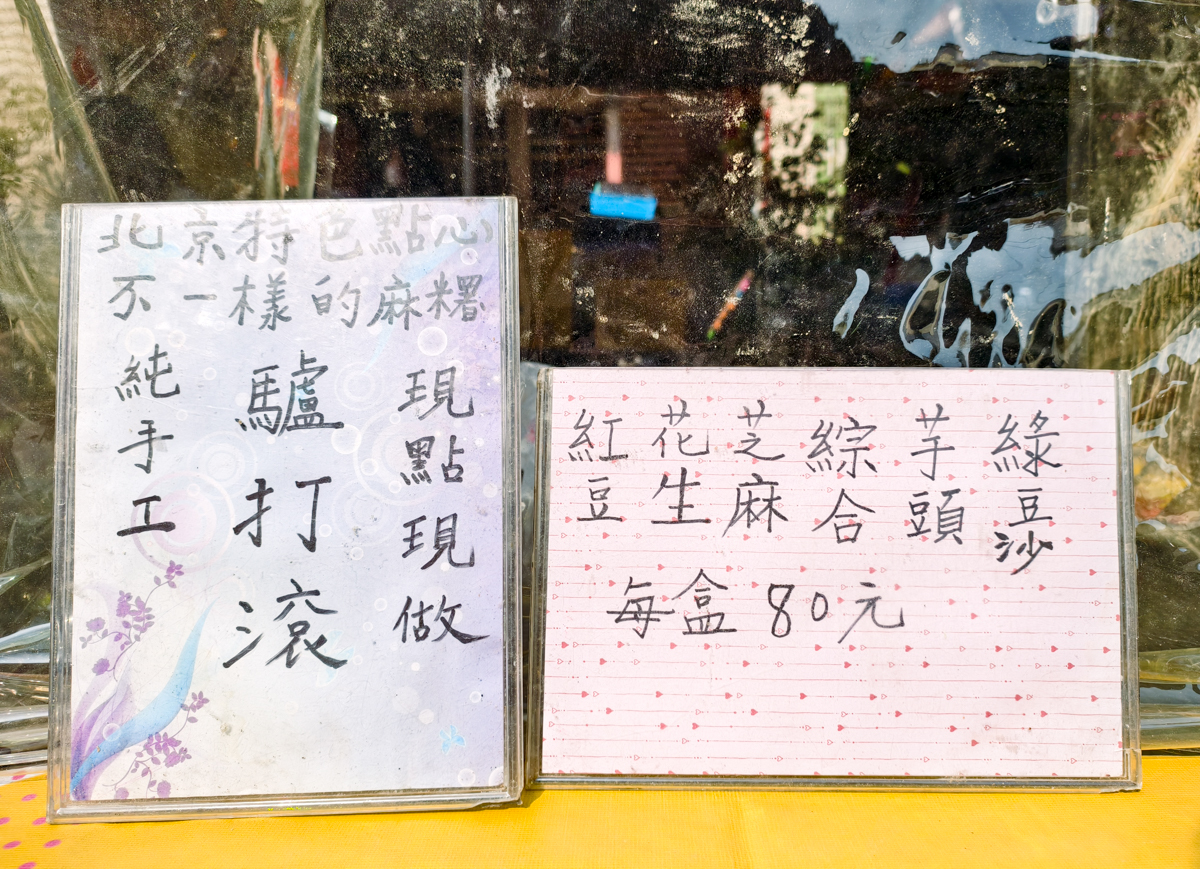 北京特色點心
不一樣的麻糬
現點現做
驢打滾
純手工
紅豆 花生 芝麻 綜合 芋頭 綠豆沙
每盒80元